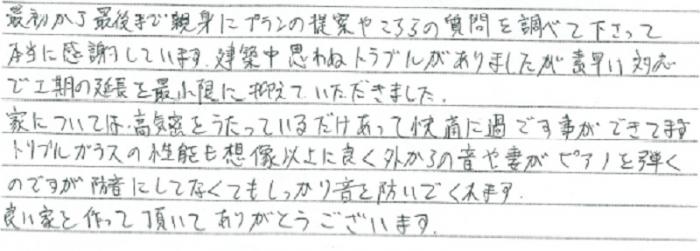 最初から最後まで親身にプランの提案やこちらの質問を調べて下さって
本当に感謝しています。建築中思わぬトラブルがありましたが素早い対応
で工期の延長を最小限に抑えていただきました。
家については、高気密をうたっているだけあって快適に過ごす事ができてます
トリプルガラスの性能も想像以上に良く外からの音や妻がピアノを弾く
のですが防音にしてなくてもしっかり音を防いでくれます。
良い家を作って頂いてありがとうございます。